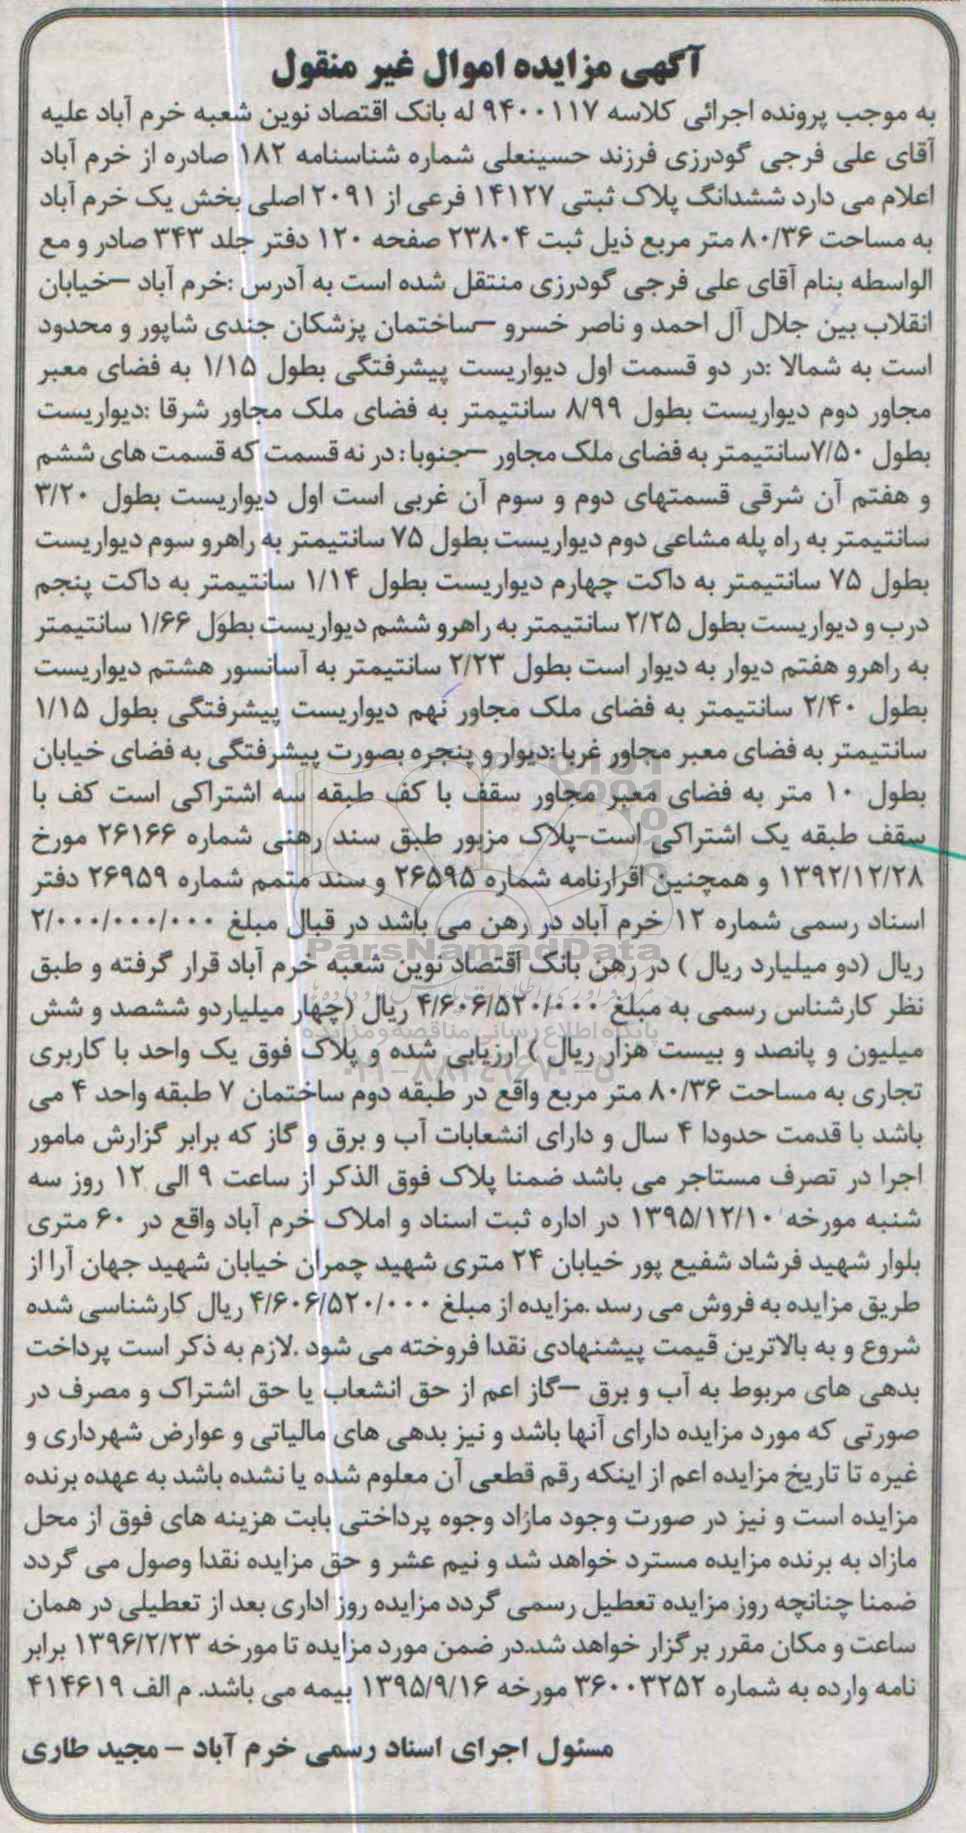 آگهی مزایده اموال غیر منقول
به موجب پرونده اجرائی کلاسه ۹۴۰۰۱۱۷ له بانک اقتصاد نوین شعبه خرم آباد علیه
آقای علی فرجی گودرزی فرزند حسینعلی شماره شناسنامه ۱۸۲ صادره از خرم آباد
اعلام می دارد ششدانگ پلاک ثبتی ۱۴۱۲۷ فرعی از ۲۰۹۱ اصلی بخش یک خرم آباد
به مساحت ۸۰/۳۶ متر مربع ذیل ثبت ۲۳۸۰۴ صفحه ۱۲۰ دفتر جلد ۳۴۳ صادر و مع
الواسطه بنام آقای علی فرجی گودرزی منتقل شده است به آدرس :خرم آباد –خیابان
انقلاب بین جلال آل احمد و ناصر خسرو –ساختمان پزشکان جندی شاپور و محدود
است به شمالا :در دو قسمت اول دیواریست پیشرفتگی بطول ۱/۱۵ به فضای معبر
مجاور دوم دیواریست بطول ۸/۹۹ سانتیمتر به فضای ملک مجاور شرقا :دیواریست
بطول ۷/۵۰سانتیمتر به فضای ملک مجاور –جنوبا : در نه قسمت که قسمت های ششم
و هفتم آن شرقی قسمتهای دوم و سوم آن غربی است اول دیواریست بطول ۳/۲۰
سانتیمتر به راه پله مشاعی دوم دیواریست بطول ۷۵ سانتیمتر به راهرو سوم دیواریست
بطول ۷۵ سانتیمتر به داکت چهارم دیواریست بطول ۱/۱۴ سانتیمتر به داکت پنجم
درب و دیواریست بطول ۲/۲۵ سانتیمتر به راهرو ششم دیواریست بطول ۱/۶۶ سانتیمتر
به راهرو هفتم دیوار به دیوار است بطول ۲/۲۳ سانتیمتر به آسانسور هشتم دیواریست
بطول ۲/۴۰ سانتیمتر به فضای ملک مجاور نهم دیواریست پیشرفتگی بطول ۱/۱۵
سانتیمتر به فضای معبر مجاور غربا :دیوار و پنجره بصورت پیشرفتگی به فضای خیابان
بطول ۱۰ متر به فضای معبر مجاور سقف با کف طبقه سه اشتراکی است کف با
سقف طبقه یک اشتراکی است-پلاک مزبور طبق سند رهنی شماره ۲۶۱۶۶ مورخ
۱۳۹۲/۱۲/۲۸ و همچنین اقرارنامه شماره ۲۶۵۹۵ و سند متمم شماره ۲۶۹۵۹ دفتر
اسناد رسمی شماره ۱۲ خرم آباد در رهن می باشد در قبال مبلغ ۲/۰۰۰/۰۰۰/۰۰۰
ParsNamadData
ریال (دو میلیارد ریال ) در رهن بانک اقتصاد نوین شعبه خرم آباد قرار گرفته و طبق
نظر کارشناس رسمی به مبلغ ۴/۶۰۶/۵۲۰/۰۰۰ ریال (چهار میلیاردو ششصد و شش
پایگاه اطلاع رسانی مناقصه و مزایده
میلیون و پانصد و بیست هزار ریال ) ارزیابی شده و پلاک فوق یک واحد با کاربری
۰۲۱-۸۸۳۴۹۶۷۰-۵
تجاری به مساحت ۸۰/۳۶ متر مربع واقع در طبقه دوم ساختمان ۷ طبقه واحد ۴ می
باشد با قدمت حدودا ۴ سال و دارای انشعابات آب و برق و گاز که برابر گزارش مامور
اجرا در تصرف مستاجر می باشد ضمنا پلاک فوق الذکر از ساعت ۹ الی ۱۲ روز سه
شنبه مورخه ۱۳۹۵/۱۲/۱۰ در اداره ثبت اسناد و املاک خرم آباد واقع در ۶۰ متری
بلوار شهید فرشاد شفیع پور خیابان ۲۴ متری شهید چمران خیابان شهید جهان آرا از
طریق مزایده به فروش می رسد .مزایده از مبلغ ۴/۶۰۶/۵۲۰/۰۰۰ ریال کارشناسی شده
شروع و به بالاترین قیمت پیشنهادی نقدا فروخته می شود .لازم به ذکر است پرداخت
بدهی های مربوط به آب و برق –گاز اعم از حق انشعاب یا حق اشتراک و مصرف در
صورتی که مورد مزایده دارای آنها باشد و نیز بدهی های مالیاتی و عوارض شهرداری و
غیره تا تاریخ مزایده اعم از اینکه رقم قطعی آن معلوم شده یا نشده باشد به عهده برنده
مزایده است و نیز در صورت وجود مازاد وجوه پرداختی بابت هزینه های فوق از محل
مازاد به برنده مزایده مسترد خواهد شد و نیم عشر و حق مزایده نقدا وصول می گردد
ضمنا چنانچه روز مزایده تعطیل رسمی گردد مزایده روز اداری بعد از تعطیلی در همان
ساعت و مکان مقرر برگزار خواهد شد.در ضمن مورد مزایده تا مورخه ۱۳۹۶/۲/۲۳ برابر
نامه وارده به شماره ۳۶۰۰۳۲۵۲ مورخه ۱۳۹۵/۹/۱۶ بیمه می باشد. م الف ۴۱۴۶۱۹
مسئول اجرای اسناد رسمی خرم آباد – مجید طاری